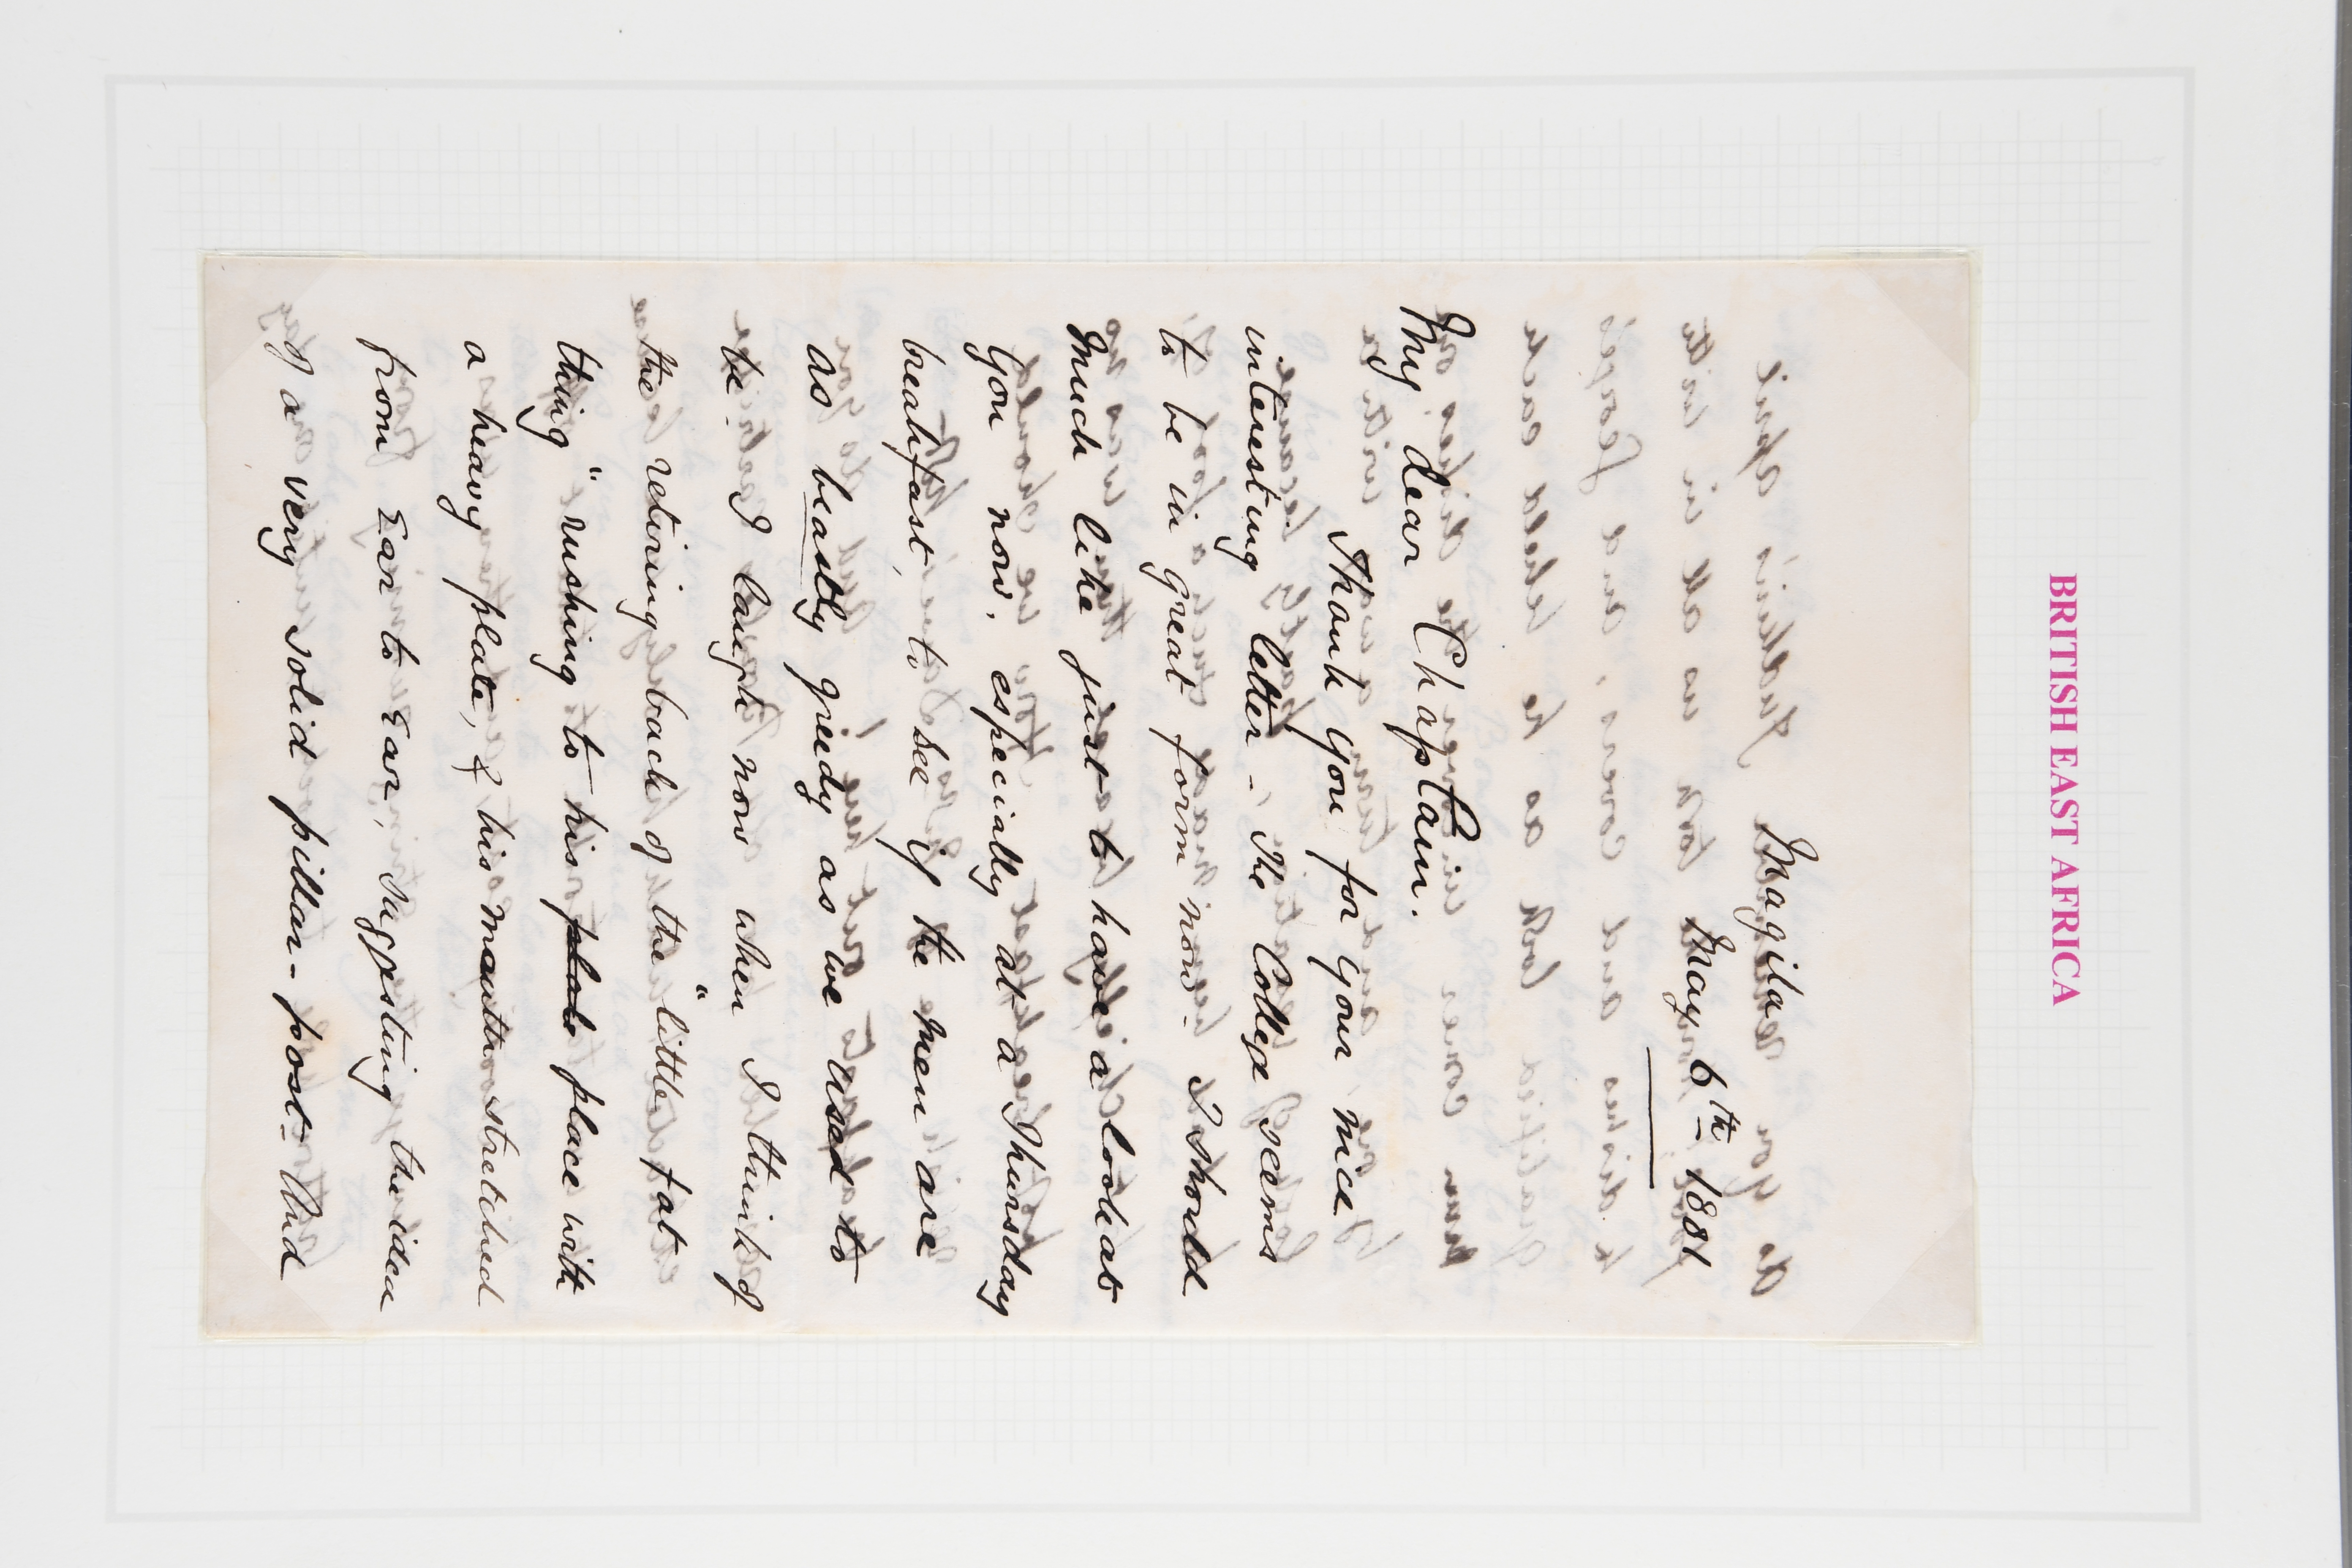 BRITISH EAST AFRICA
Magila
May 6th 1881
My dear Chaplain.
Thank you for your nice
interesting letter - The College seems
to be in great form now. I should
much like just to have a look at
you now, especially at a Thursday
breakfast, to see if the men are
as beastly greedy as we used to
be. I laugh now when I think of
the retiring back of the "little fat
thing" rushing to his place with
a heavy plate, & his mouth stretched
from Ear to Ear, suggesting the idea
of a very solid pillar-post - And